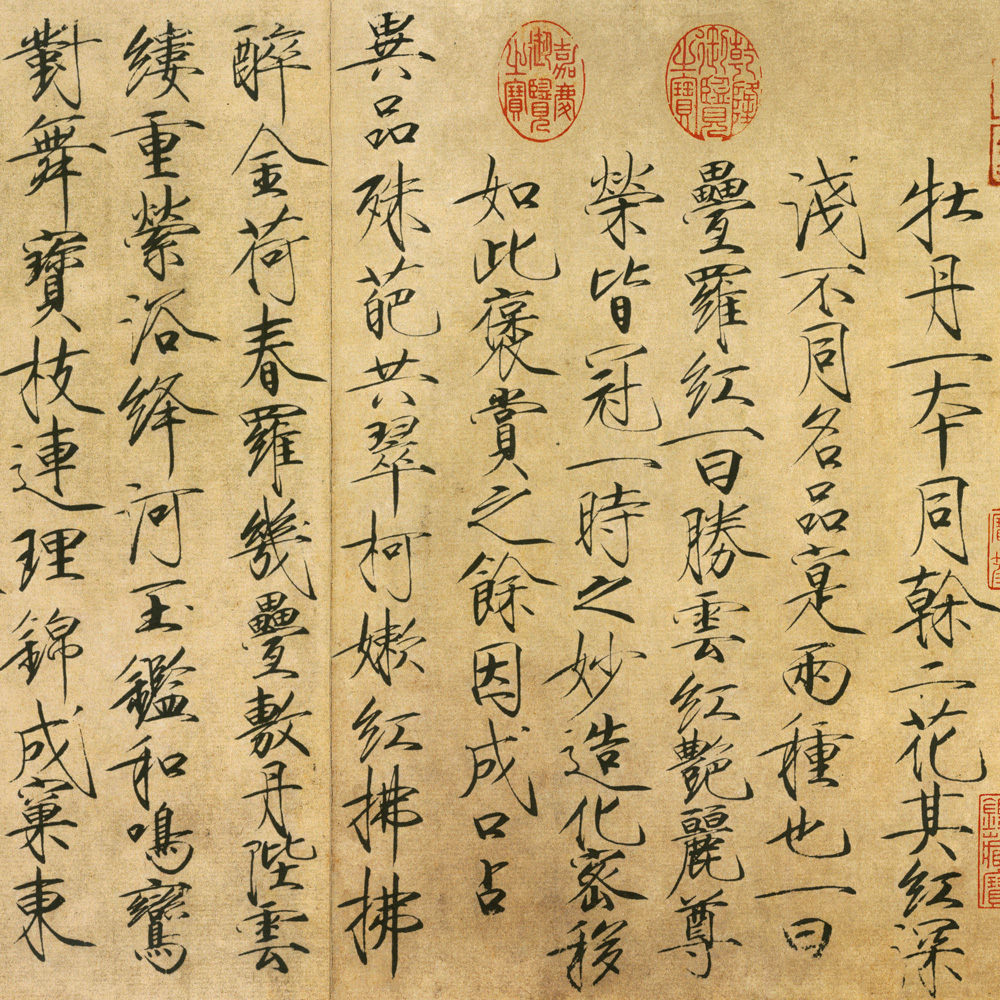 牡丹一本同幹二花其紅深
淺不同名品寔兩種也一曰
疊羅紅一曰勝雲紅艷麗尊
榮皆冠一時之妙造化密移
如此褒賞之餘因成口占
異品殊葩共翠柯嫩紅拂拂
醉金荷春羅幾疊敷丹陛雲
縷重縈浴絳河玉鑑和鳴鸞
對舞寶枝連理錦成窠東
乾隆御覽之寶
嘉慶御覽之寶